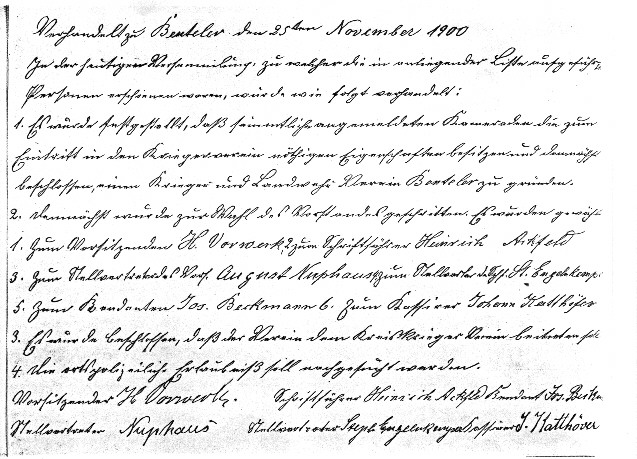 Verhandelt zu Benteler den 25ten November 1900
In der heutigen Versammlung, zu welcher die in anliegender Liste aufgeführt.
Personen erschienen waren, wurde wie folgt verhandelt:
1. Es wurde festgestellt, daß sämmtliche angemeldeten Kameraden die zum
Eintritt in den Kriegerverein nöthigen Eigenschaften besitzen und demnächst
beschlossen, einen Krieger und Landwehr Verein Benteler zu gründen.
2. Demnächst wurde zur Wahl des Vorstandes geschritten. Es wurden gewäh
1. Zum Vorsitzenden H. Vorwerk, 2 zum Schriftführer Heinrich Ackfeld
3. Zum Stellvertreter des Vors. August Nuphaus 4 zum Stellvertreter des Schf. St. Engelekemp
5. Zum Rendanten Jos. Beckmann 6. Zum Kassirer Johann Hatthöver
3. Es wurde beschlossen, daß der Verein dem Kreiskrieger Verein beitreten soll
4. Die ortspolizeiliche Erlaubniß soll nachgesucht werden.
Vorsitzender H. Vorwerk. Schriftführer Heinrich Ackfld Rendant Jos. Beckm
Stellvertreter Nuphaus Stellvertreter Steph Engelekemper Kassirer J. Hatthöver